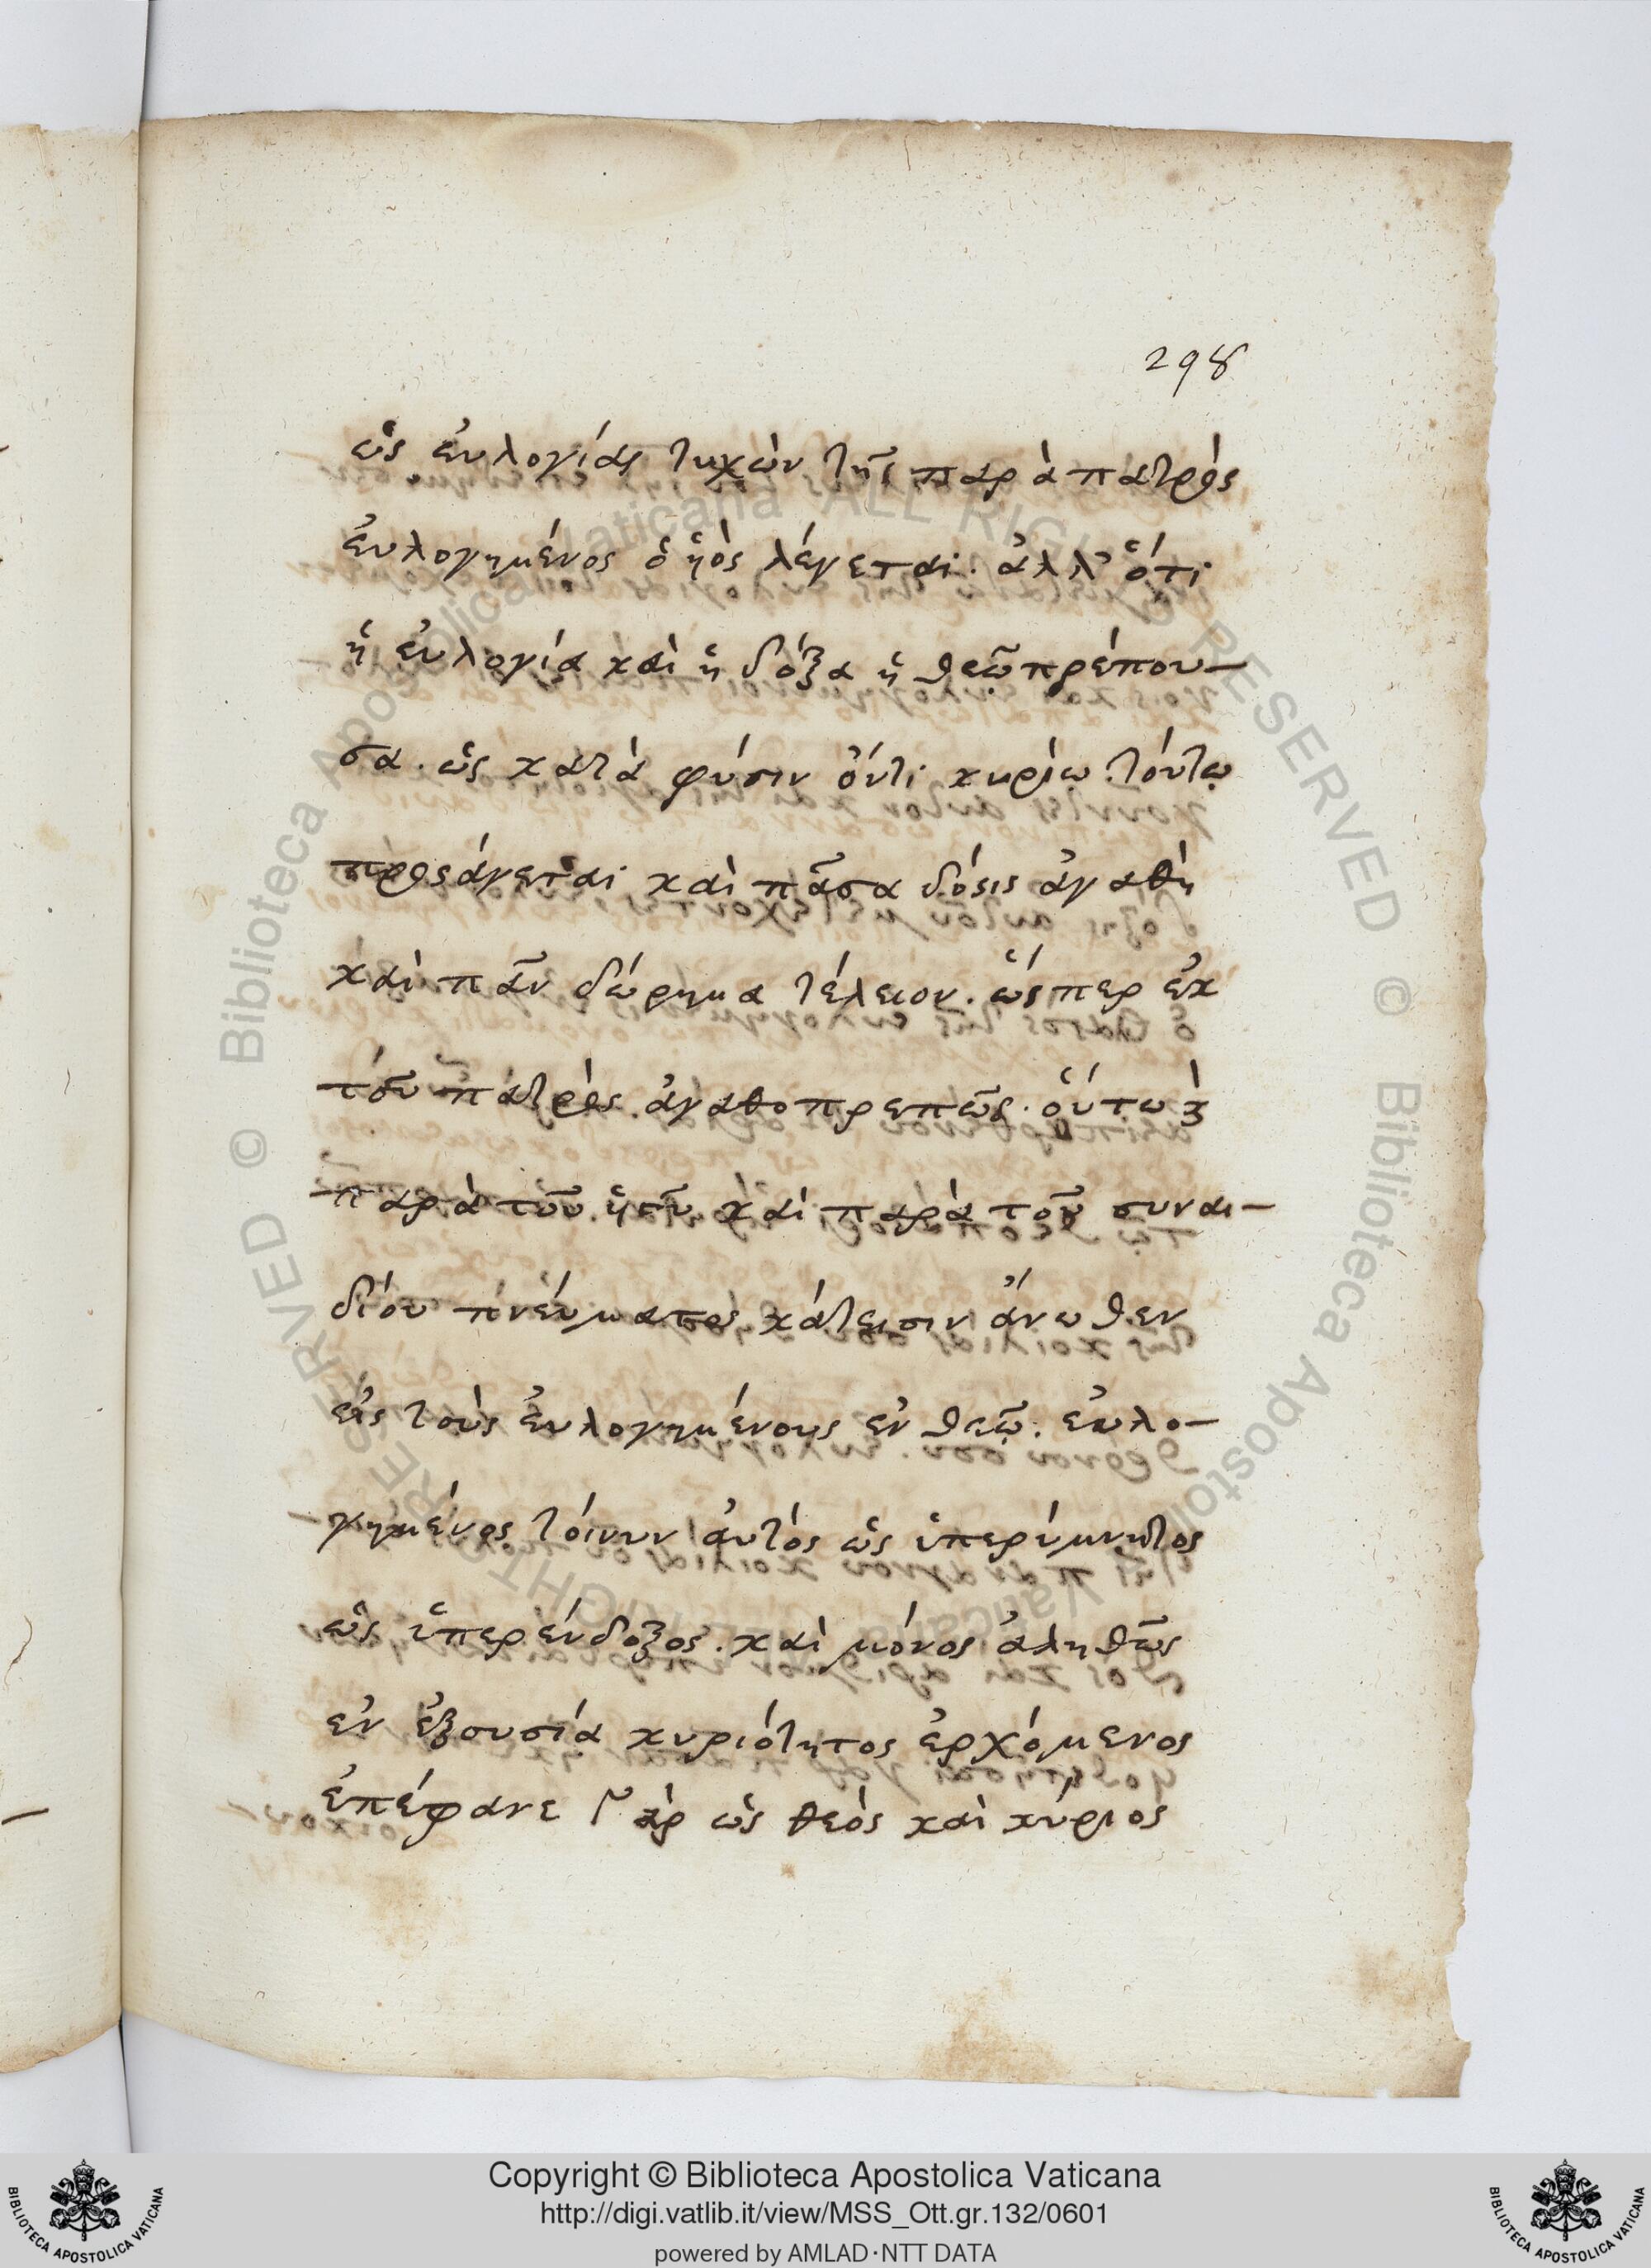 298
ὡς ἐυλογίας τυχὼν τῆς παρὰ πατρὸς
ἐυλογημένος ὁ ὑιὸς λέγεται· ἀλλ' ὅτι
ἡ ἐυλογία καὶ ἡ δόξα ἡ θεῷ πρέπου-
σα. ὡς κατὰ φύσιν ὄντι κυρίῳ τούτῳ
προσάγεται καὶ πᾶσα δόσις ἀγαθὴ
καὶ πᾶν δώρημα τέλειον. ὥσπερ ἐκ
τοῦ πατρὸς ἀγαθοπρεπῶς. ὅυτω κ
παρὰ τοῦ ὑιοῦ καὶ παρὰ τοῦ συναι-
δίου πνεύματος κάτεισιν ἄνωθεν
εἰς τοὺς ἐυλογημένους ἐν θεῷ. ἐυλο-
γημένος τοίνυν ἀυτός ὡς ὑπερύμνητος
ὡς ὑπερένδοξος. καὶ μόνος ἀληθῶς
ἐν ἐξουσία κυριότητος ἐρχόμενος
ἐπέφανε γὰρ ὡς θεὸς καὶ κύριος
© Biblioteca Apostolica Vaticana ALL RIGHTS RESERVED
© Biblioteca Apostolica Vaticana ALL RIGHTS RESERVED
Copyright © Biblioteca Apostolica Vaticana
http://digi.vatlib.it/view/MSS_Ott.gr.132/0601
powered by AMLAD·NTT DATA
BIBLIOTECA APOSTOLICA VATICANA
BIBLIOTECA APOSTOLICA VATICANA